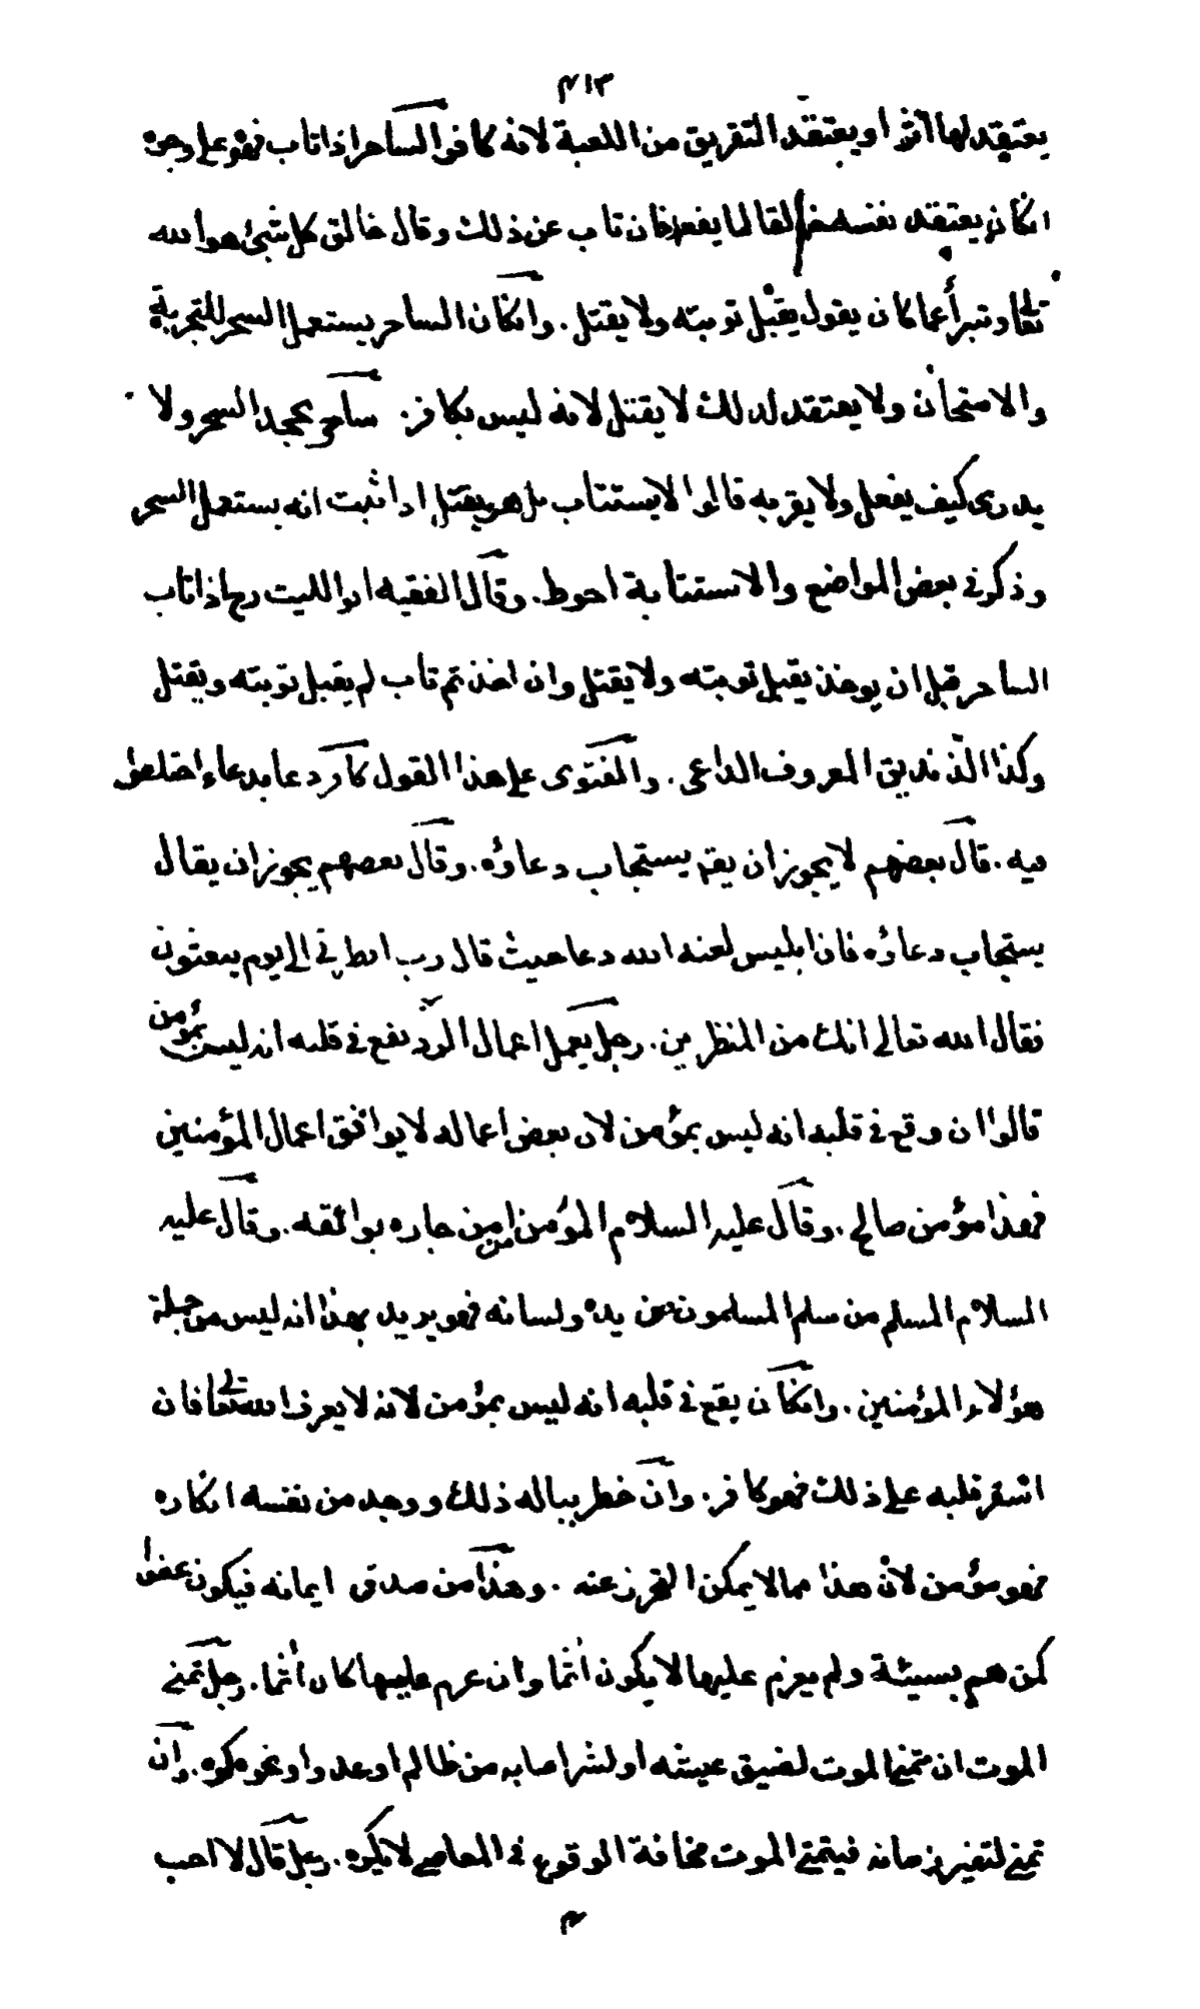 ٤١٣
يعتقد لها اثرا ويعتقد التفريق من اللعبة لانه كافر الساحر اذا تاب فهو على وجوه
انكان يعتقد نفسه خالقا لما يفعل فان تاب عن ذلك وقال خالق كل شئ هو الله
تعالى وتبرأ عما كان يقول يقبل توبته ولا يقتل. وانكان الساحر يستعمل السحر للتجربة
والامتحان ولا يعتقد لذلك لا يقتل لانه ليس بكافر. ساحر يجحد السحر ولا
يدرى كيف يفعل ولا يقر به قالوا لا يستتاب بل هو يقتل اذا ثبت انه يستعمل السحر
وذكر فى بعض المواضع والاستتابة احوط. وقال الفقيه ابو الليث رح اذا تاب
الساحر قبل ان يوخذ يقبل توبته ولا يقتل وان اخذ ثم تاب لم يقبل توبته ويقتل
وكذا الزنديق المعروف الداعى. والفتوى على هذا القول كافر دعا بدعاء اختلفوا
فيه. قال بعضهم لا يجوز ان يقال يستجاب دعاؤه. وقال بعضهم يجوز ان يقال
يستجاب دعاؤه فان ابليس لعنه الله دعا حيث قال رب انظرنى الى يوم يبعثون
فقال الله تعالى انك من المنظرين. رجل يعمل اعمال البر ويقع فى قلبه انه ليس بمؤمن
قالوا ان وقع فى قلبه انه ليس بمؤمن لان بعض اعماله لا يوافق اعمال المؤمنين
فهذا مؤمن صالح. وقال عليه السلام المؤمن من امن جاره بوائقه. وقال عليه
السلام المسلم من سلم المسلمون من يده ولسانه فهو يريد بهذا انه ليس من جملة
هؤلاء المؤمنين. وانكان يقع فى قلبه انه ليس بمؤمن لانه لا يعرف الله تعالى فان
استقر قلبه على ذلك فهو كافر. وان خطر بباله ذلك ووجد من نفسه انكاره
فهو مؤمن لان هذا مما لا يمكن التحرز عنه. وهذا من صدق ايمانه فيكون عفوا
كمن هم بسيئة ولم يعزم عليها لا يكون آثما وان عزم عليها كان آثما. رجل تمنى
الموت ان تمنى الموت لضيق عيشه او لشر اصابه من ظالم او عدو او نحوه كره. وان
تمنى لتغير زمانه فيتمنى الموت مخافة الوقوع فى المعاصى لا يكره. رجل قال لا احب